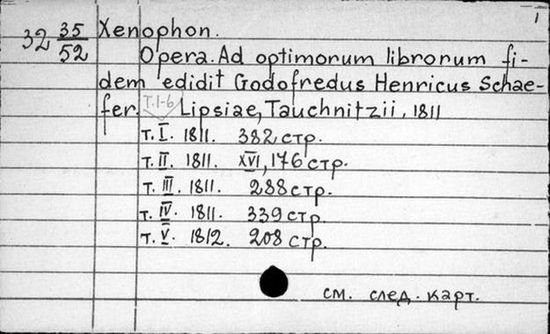 1
32 35/52 Xenophon.
Opera. Ad optimorum librorum fi-
dem edidit Godofredus Henricus Schae-
fer. т.1-6 Lipsiae, Tauchnitzii, 1811
т. I. 1811. 382 стр.
т. II. 1811. XVI, 176 стр.
т. III. 1811. 288 стр.
т. IV. 1811. 339 стр.
т. V. 1812. 208 стр.
см. след. карт.